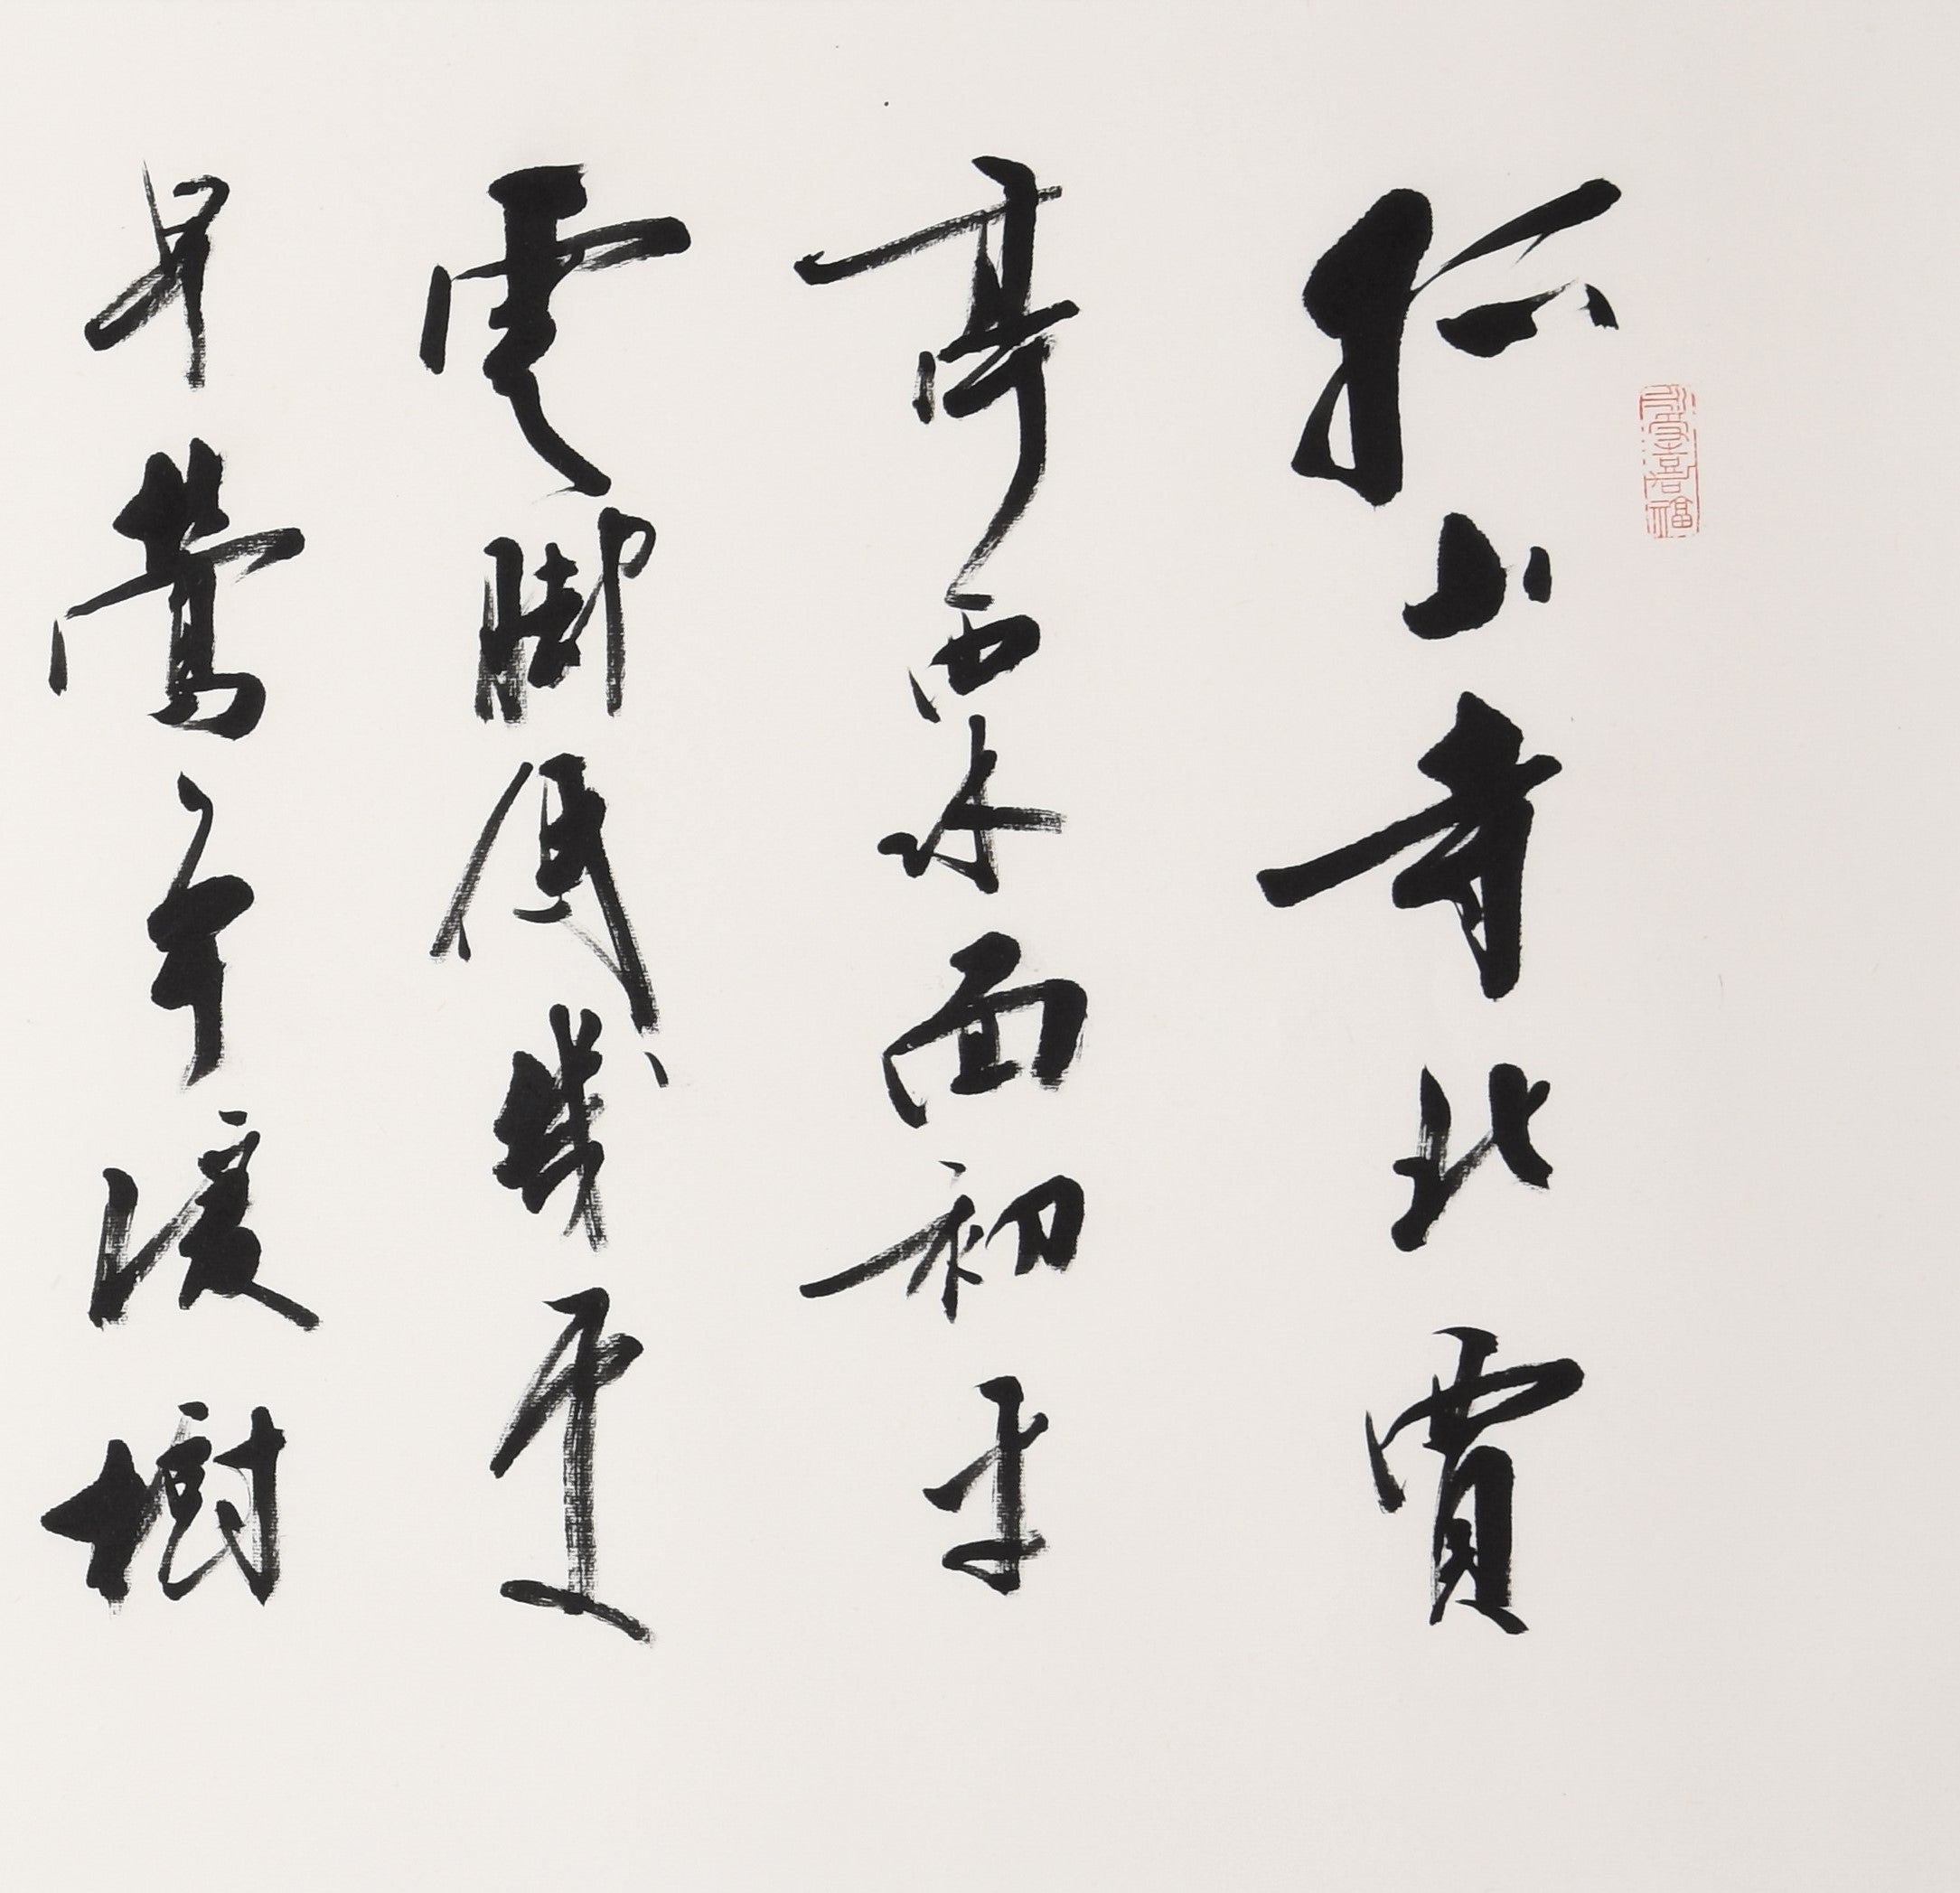 孤山寺北賈
亭西水面初平
雲脚低幾處
早鶯爭暖樹